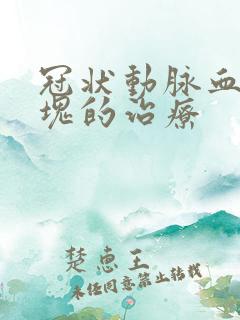 冠狀動脈血
塊的治療
楚惠王
未任同意禁止转载